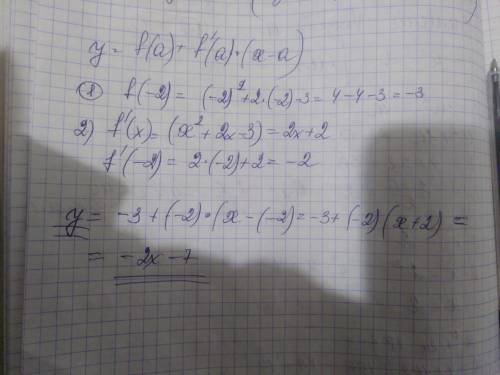 y = f(a) + f'(a)·(x-a)
① f(-2) = (-2)²+2·(-2)-3 = 4-4-3 = -3
2) f'(x) = (x²+2x-3) = 2x+2
f'(-2) = 2·(-2)+2 = -2
y = -3+(-2)·(x-(-2) = -3+(-2)(x+2) =
= -2x-7